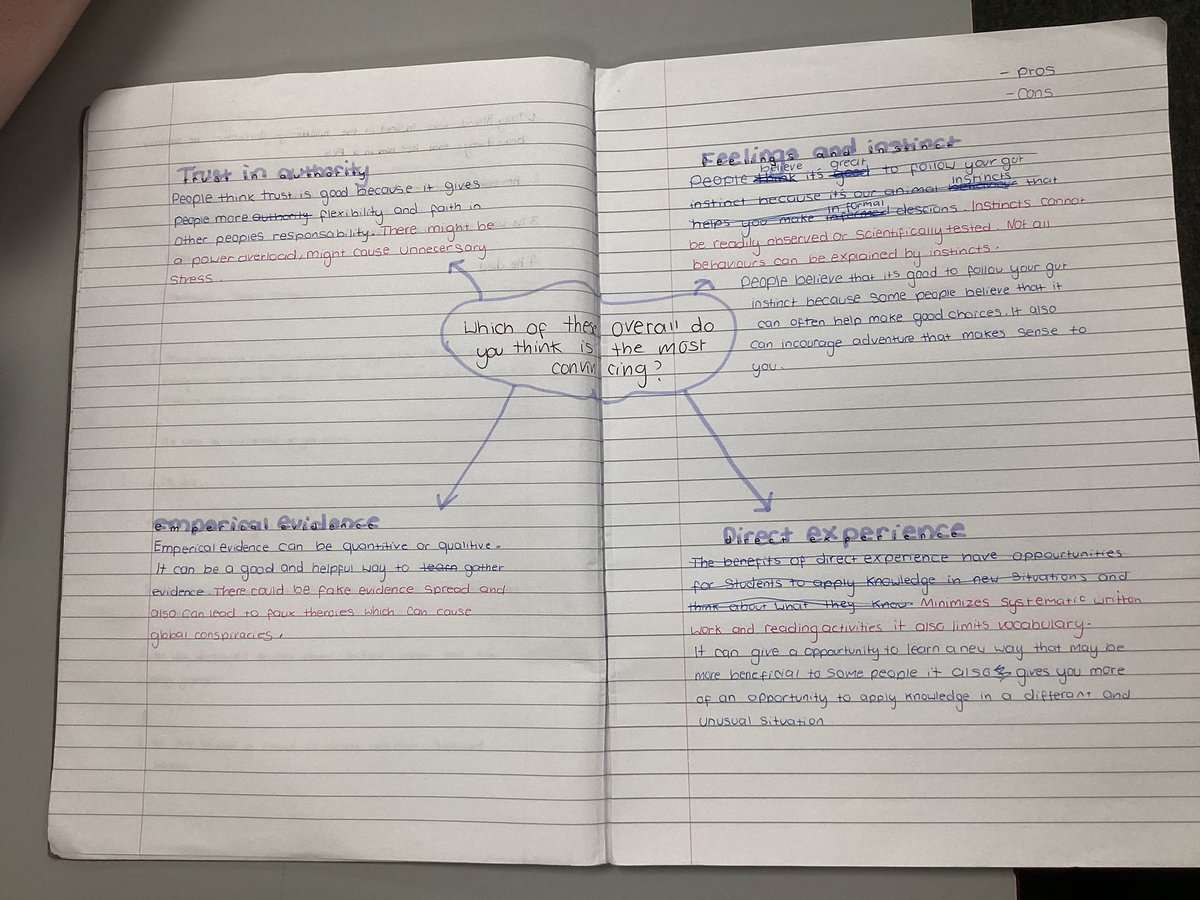 Trust in authority
People think trust is good because it gives
people more authority flexibility and faith in
other peoples responsability. There might be
a power overload, might cause unnecersary
stress.
- Pros
- Cons
Feelings and instinct
believe great
People think its good to follow your gut
instincts
instinct because its our animal that
informal
helps you make informed descions. Instincts cannot
be readily observed or scientifically tested. Not all
behaviours can be explained by instincts.
people believe that its good to follow your gut
instinct because some people believe that it
can often help make good choices. It also
can incourage adventure that makes sense to
you.
Which of these overall do
you think is the most
convincing?
emperical evidence
Emperical evidence can be quantitive or qualitive.
It can be a good and helpful way to learn gather
evidence. There could be fake evidence spread and
also can lead to faux theroies which can cause
global conspiracies.
Direct experience
The benefits of direct experience have appourtunities
for students to apply knowledge in new situations and
think about what they know. Minimizes systematic written
work and reading activities it also limits vocabulary.
It can give a opportunity to learn a new way that may be
more beneficial to some people it also gives you more
of an opportunity to apply knowledge in a different and
unusual situation